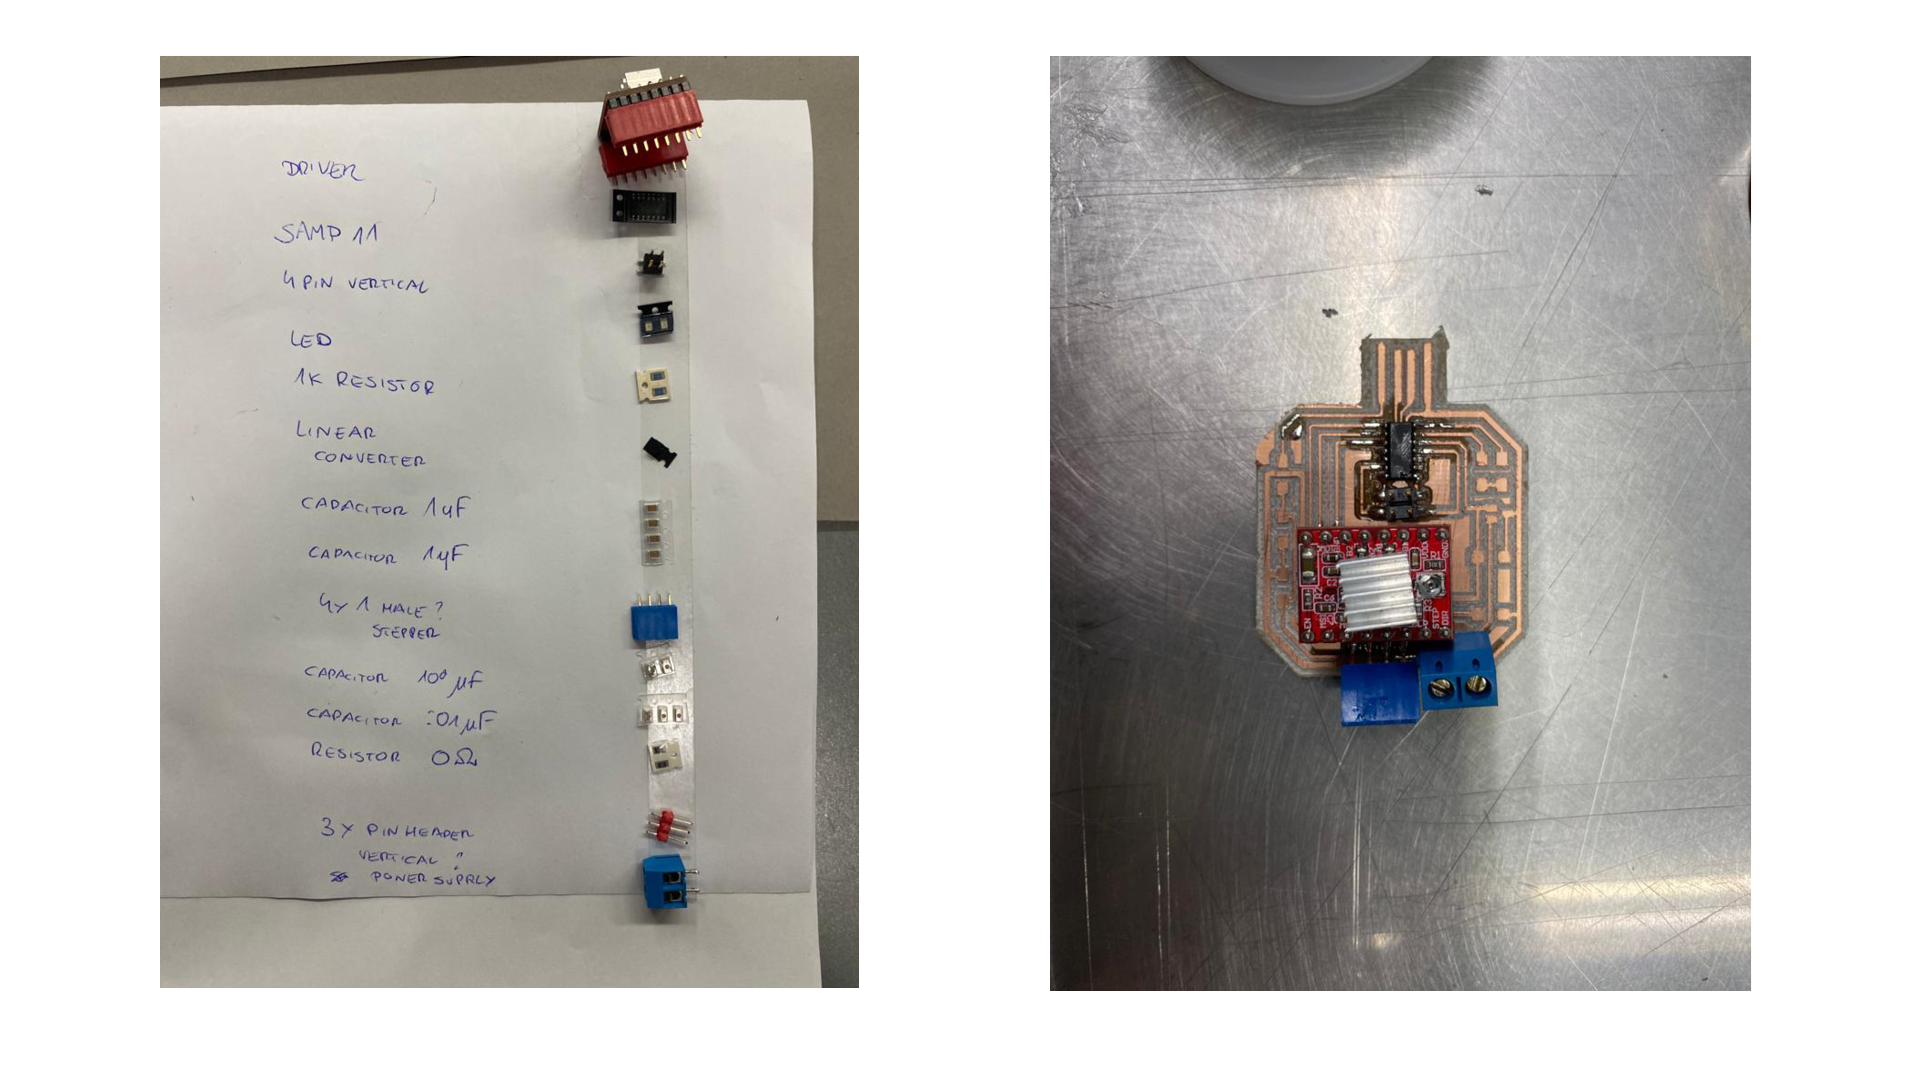 DRIVER
SAMD 11
4 PIN VERTICAL
LED
1K RESISTOR
LINEAR
CONVERTER
CAPACITOR 1uF
CAPACITOR 1uF
4x 1 MALE ?
STEPPER
CAPACITOR 100 µF
CAPACITOR :01µF
RESISTOR 0Ω
3x PIN HEADER
VERTICAL ?
POWER SUPPLY
VDD
GND
R1
R3
EN
STEP
DIR